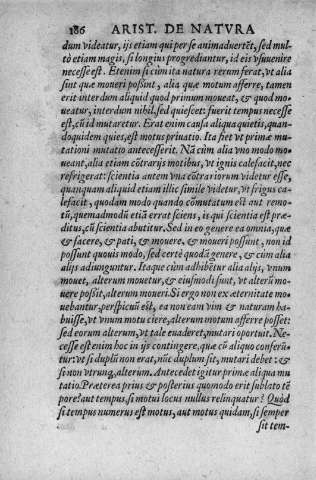 186 ARIST. DE NATVRA
dum videatur, ijs etiam qui per se animaduertēt, sed mul-
tò etiam magis, si longius progrediantur, id eis vsuuenire
necesse est. Etenim si cùm ita natura rerum ferat, vt alia
sint quæ moueri possint, alia quæ motum afferre, tamen
erit interdum aliquid quod primum moueat, & quod mo-
ueatur, interdum nihil, sed quiescet: fuerit tempus necesse
est, cùm id mutaretur. Erat enim causa aliqua quietis, quan-
doquidem quies, est motus priuatio. Ita fiet vt primæ mu-
tationi mutatio antecesserit. Nā cùm alia vno modo mo-
ueant, alia etiam cōtrarijs motibus, vt ignis calefacit, nec
refrigerat: scientia autem vna cōtrariorum videtur esse,
quanquam aliquid etiam illic simile videtur, vt frigus ca-
lefacit, quodam modo quando cōmutatum est aut remo-
tū, quemadmodū etiā errat sciens, is qui scientia est præ-
ditus, cū scientia abutitur. Sed in eo genere ea omnia, quæ
& facere, & pati, & mouere, & moueri possunt, non id
possunt quouis modo, sed certè quodā genere, & cùm alia
alijs adiunguntur. Itaque cùm adhibētur alia alijs, vnum
mouet, alterum mouetur, & eiusmodi sunt, vt alterū mo-
uere possit, alterum moueri. Si ergo non ex æternitate mo-
uebantur, perspicuū est, ea non eam vim & naturam ha-
buisse, vt vnum motu ciere, alterum motum afferre posset:
sed eorum alterum, vt tale euaderet, mutari oportuit. Ne-
cesse est enim hoc in ijs contingere, quæ cū aliquo conferū-
tur: vt si duplū non erat, nūc duplum sit, mutari debet: &
si non vtrunq, alterum. Antecedet igitur primæ aliqua mu
tatio. Præterea prius & posterius quomodo erit sublato tē
pore? aut tempus, si motui locus nullus relinquatur? Quòd
si tempus numerus est motus, aut motus quidam, si semper
sit tem-